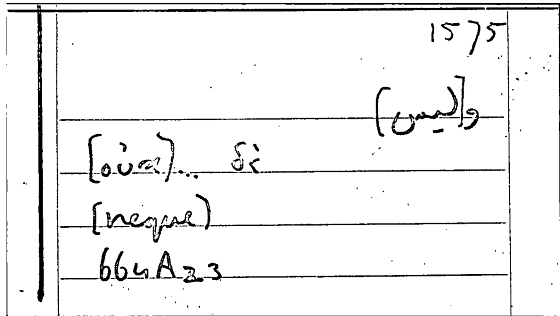 1575
و[ليس]
[οὐκ]... δὲ
[neque]
664A23